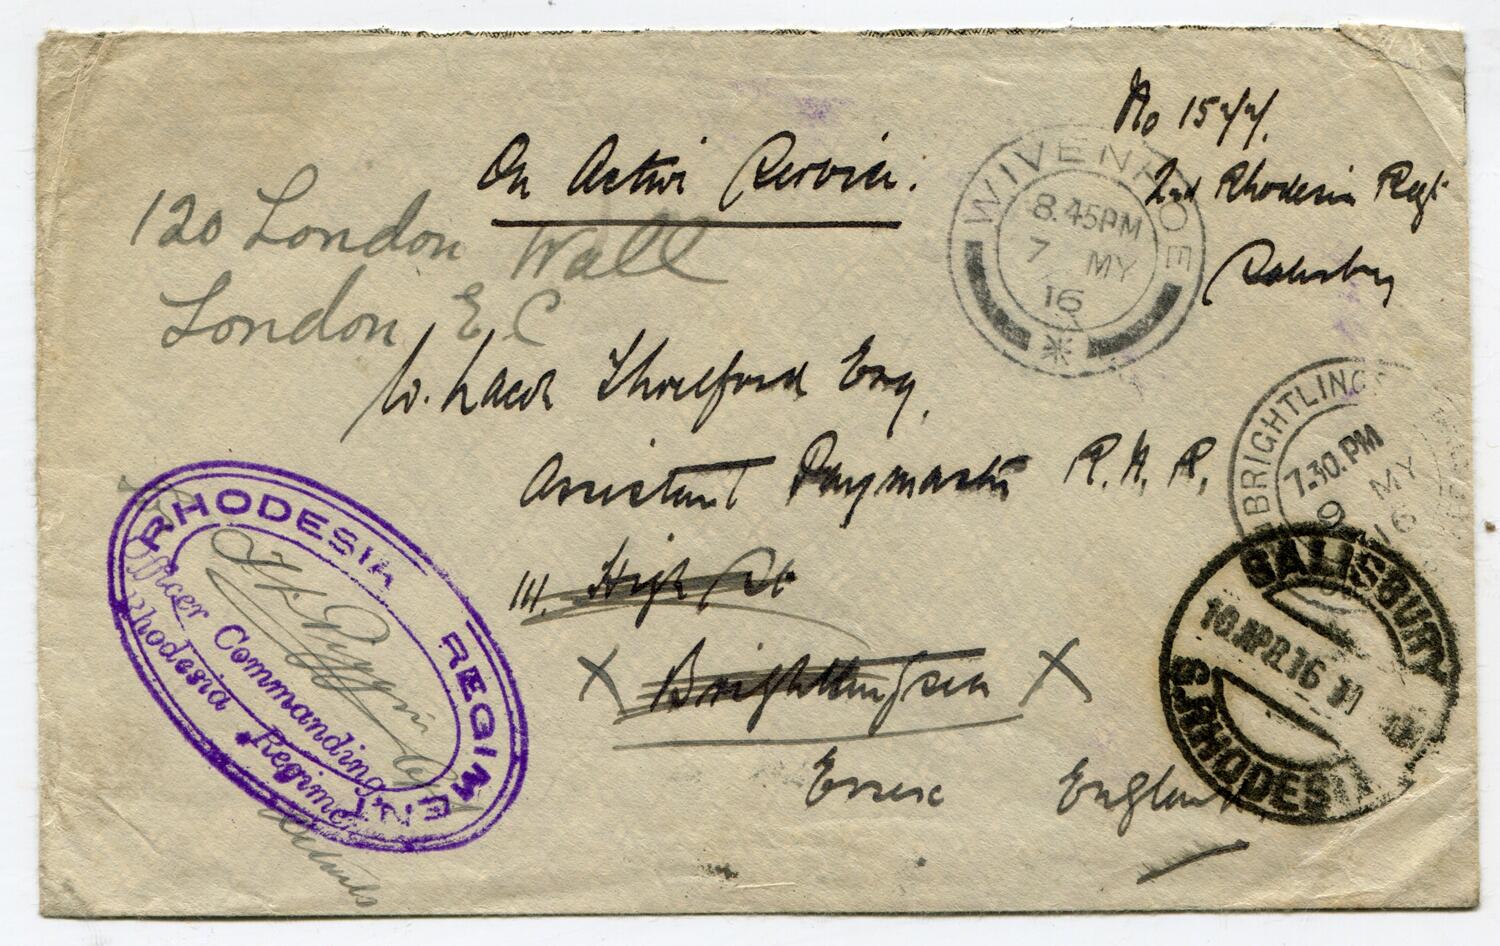 On Active Service.
No
2nd Rhodesia Regt
Salisbury
120 London Wall
London E C
W. Threlford Esq,
Assistant Paymaster R. A. R,
111. High St
X Brightlingsea X
Essex England
WIVENHOE
8.45PM
7 MY
16
BRIGHTLING
7.30.PM
9 MY
16
SALISBURY
10.APR.16
S.RHODESIA
RHODESIA REGIMENT
Officer Commanding
Rhodesia Regime